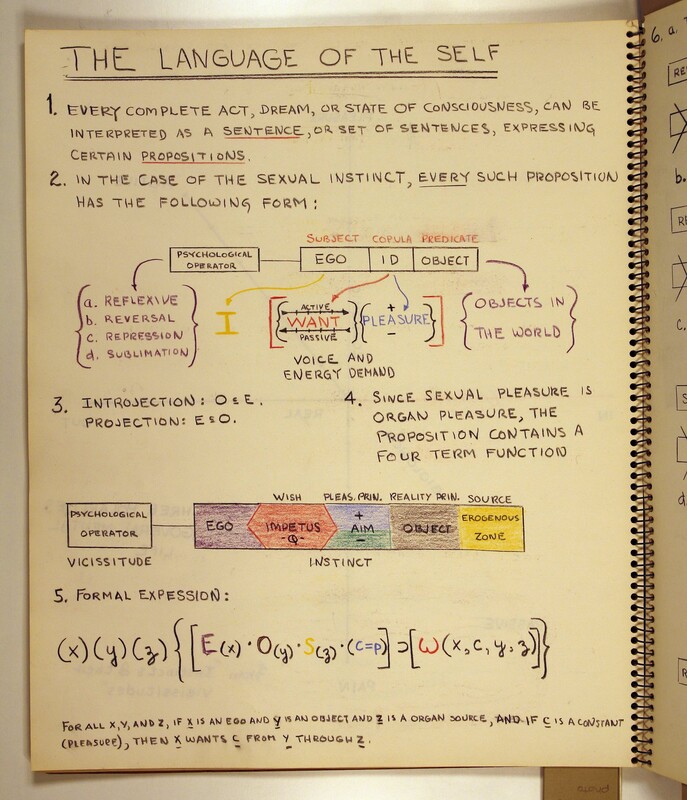 THE LANGUAGE OF THE SELF
1. EVERY COMPLETE ACT, DREAM, OR STATE OF CONSCIOUSNESS, CAN BE
INTERPRETED AS A SENTENCE, OR SET OF SENTENCES, EXPRESSING
CERTAIN PROPOSITIONS.
2. IN THE CASE OF THE SEXUAL INSTINCT, EVERY SUCH PROPOSITION
HAS THE FOLLOWING FORM:
SUBJECT COPULA PREDICATE
PSYCHOLOGICAL
OPERATOR
EGO ID OBJECT
a. REFLEXIVE
b. REVERSAL
c. REPRESSION
d. SUBLIMATION
I
ACTIVE
WANT
PASSIVE
+
PLEASURE
-
OBJECTS IN
THE WORLD
VOICE AND
ENERGY DEMAND
3. INTROJECTION: O ≤ E.
PROJECTION: E ≤ O.
4. SINCE SEXUAL PLEASURE IS
ORGAN PLEASURE, THE
PROPOSITION CONTAINS A
FOUR TERM FUNCTION
WISH PLEAS. PRIN. REALITY PRIN. SOURCE
PSYCHOLOGICAL
OPERATOR
EGO
IMPETUS
-Q-
+
AIM
-
OBJECT
EROGENOUS
ZONE
VICISSITUDE
INSTINCT
5. FORMAL EXPESSION:
(x)(y)(z){[E(x)·O(y)·S(z)·(C=P)]⊃[W(x,c,y,z)]}
FOR ALL X,Y, AND Z, IF X IS AN EGO AND Y IS AN OBJECT AND Z IS A ORGAN SOURCE, AND IF C IS A CONSTANT
(PLEASURE), THEN X WANTS C FROM Y THROUGH Z.
6. a.
b.
c.
d